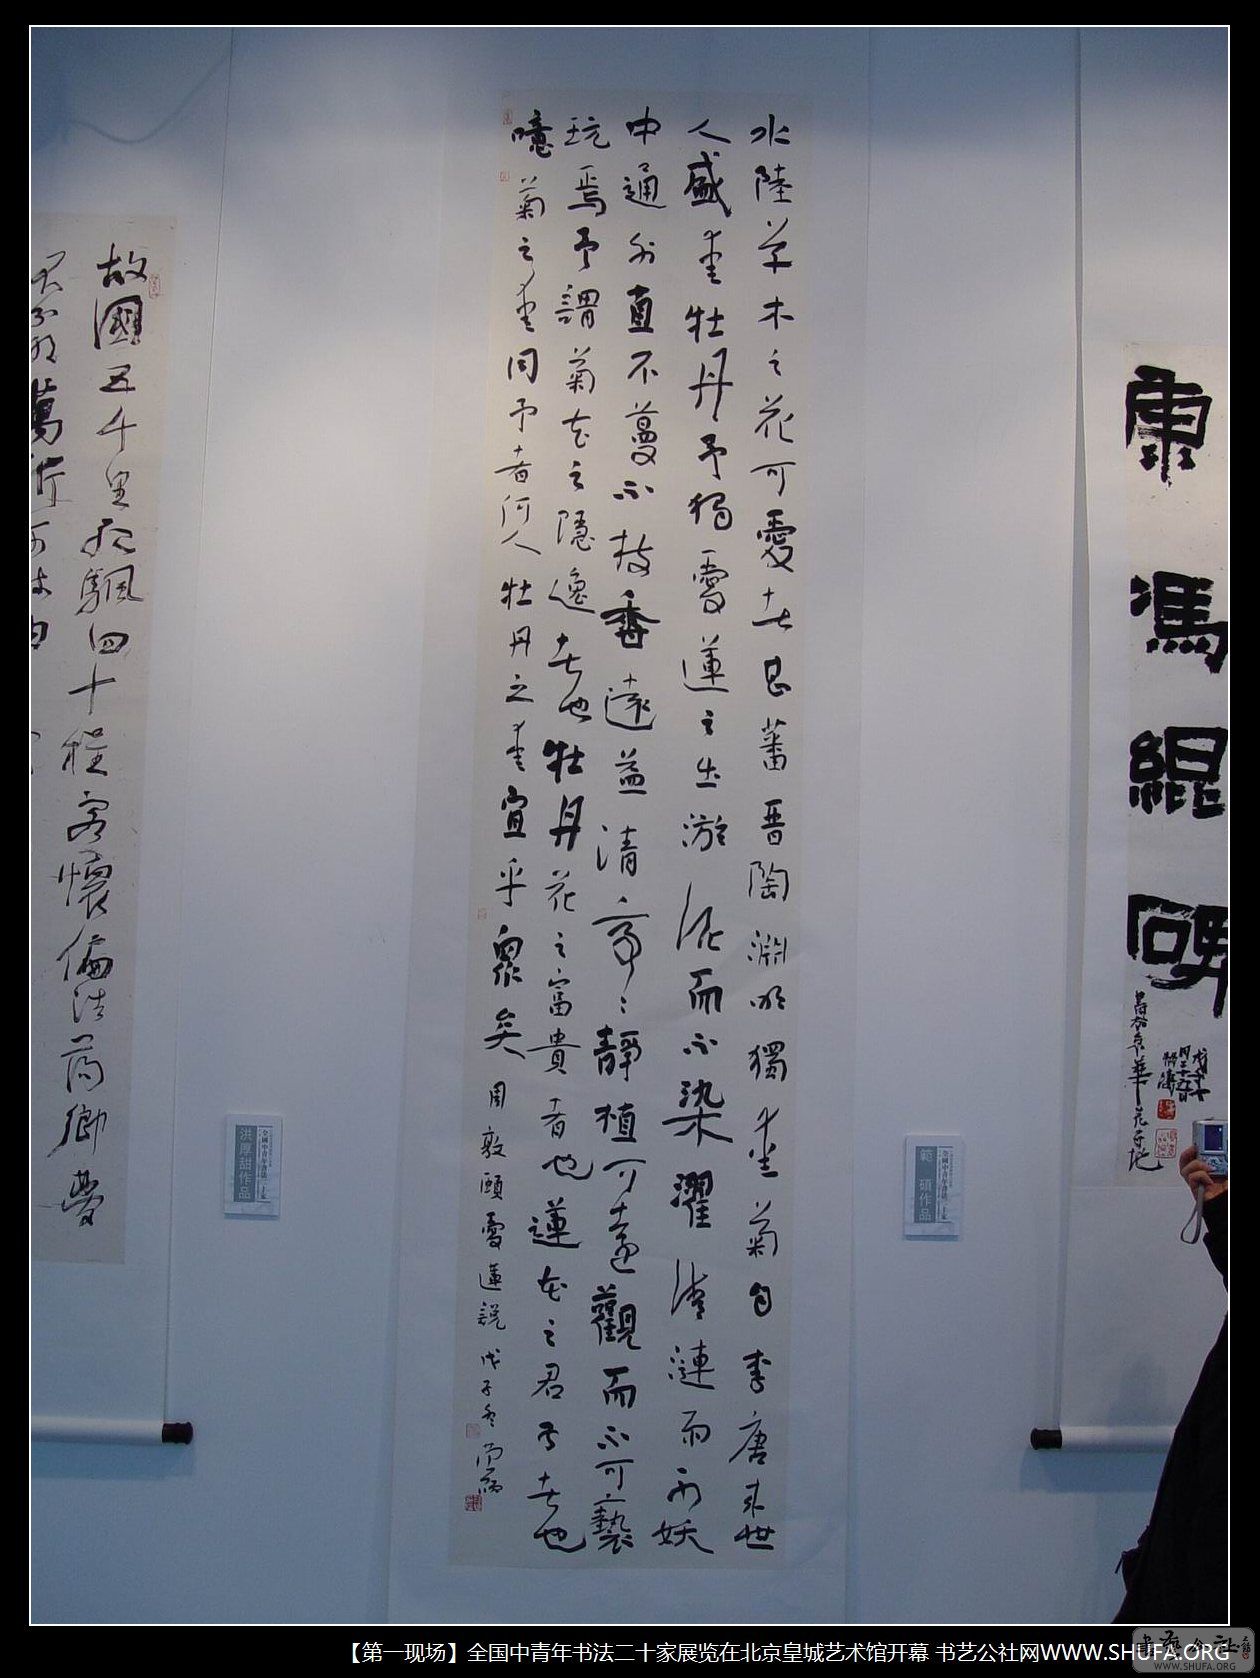 康馮緄碑
水陸草木之花可愛者甚蕃晉陶淵明獨愛菊自李唐來世
人盛愛牡丹予獨愛蓮之出淤泥而不染濯清漣而不妖
中通外直不蔓不枝香遠益清亭〻靜植可遠觀而不可褻
玩焉予謂菊花之隱逸者也牡丹花之富貴者也蓮花之君子者也
噫菊之愛同予者何人牡丹之愛宜乎衆矣 周敦頤愛蓮說 戊子冬
故國五千里孤颿四十程客懷偏浩蕩鄉夢
全國中青年書法二十家
範碩作品
全國中青年書法二十家
洪厚甜作品
【第一现场】全国中青年书法二十家展览在北京皇城艺术馆开幕 书艺公社网WWW.SHUFA.ORG
书艺公社
WWW.SHUFA.ORG